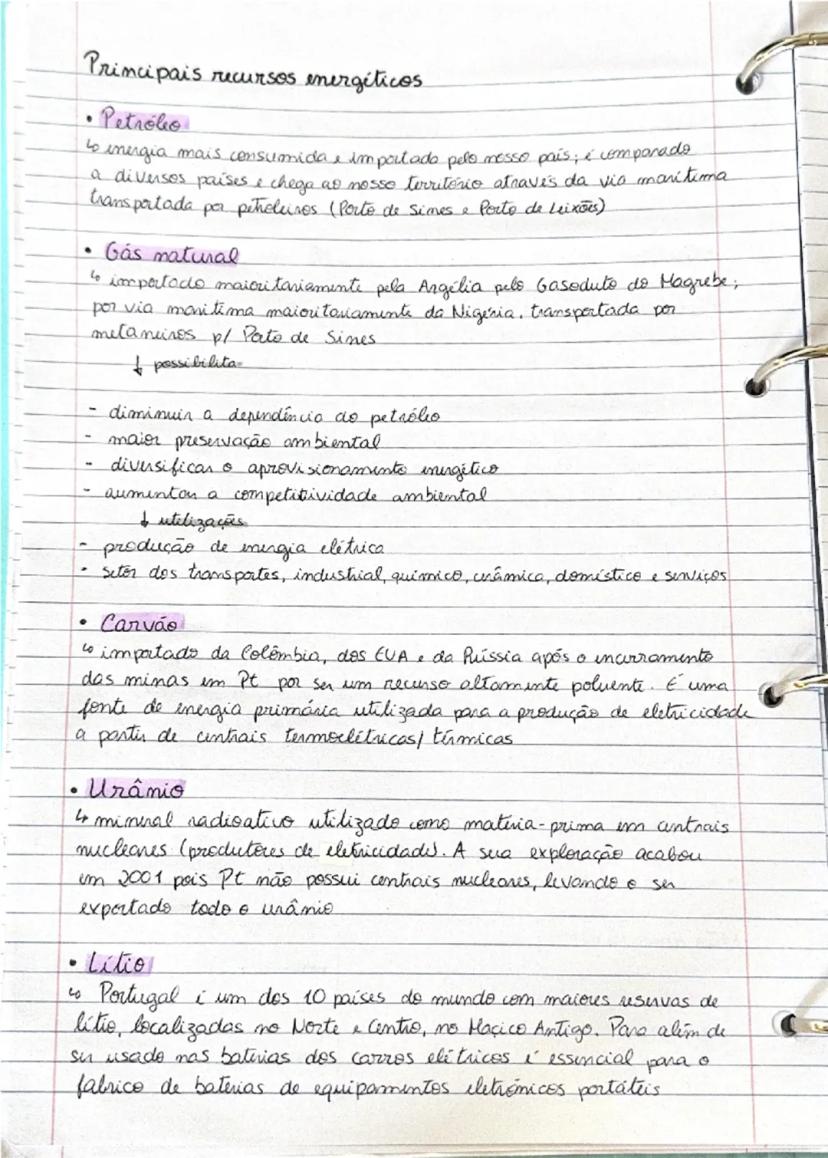 Principais recursos energéticos
• Petróleo
↳ energia mais consumida e importada pelo nosso país; é comparado
a diversos países e chega ao nosso território através da via marítima
transportada por petroleiros (Porto de Sines e Porto de Leixões)
• Gás natural
↳ importado maioritariamente pela Argélia pelo Gasoduto do Magrebe;
por via marítima maioritariamente da Nigéria, transportada por
metaneiros p/ Porto de Sines
↓ possibilita
- diminuir a dependência do petróleo
- maior preservação ambiental
- diversificar o aprovisionamento energético
- aumentar a competitividade ambiental
↓ utilizações
- produção de energia elétrica
- setor dos transportes, industrial, químico, cerâmica, doméstico e serviços
• Carvão
↳ importado da Colômbia, dos EUA e da Rússia após o encerramento
das minas em Pt por ser um recurso altamente poluente. É uma
fonte de energia primária utilizada para a produção de eletricidade
a partir de centrais termoelétricas/ térmicas
• Urânio
↳ mineral radioativo utilizado como matéria-prima em centrais
nucleares (produtores de eletricidade). A sua exploração acabou
em 2001 pois Pt não possui centrais nucleares, levando a ser
exportado todo o urânio
• Lítio
↳ Portugal é um dos 10 países do mundo com maiores reservas de
lítio, localizadas no Norte e Centro, no Maciço Antigo. Para além de
ser usado nas baterias dos carros elétricos é essencial para o
fabrico de baterias de equipamentos eletrónicos portáteis